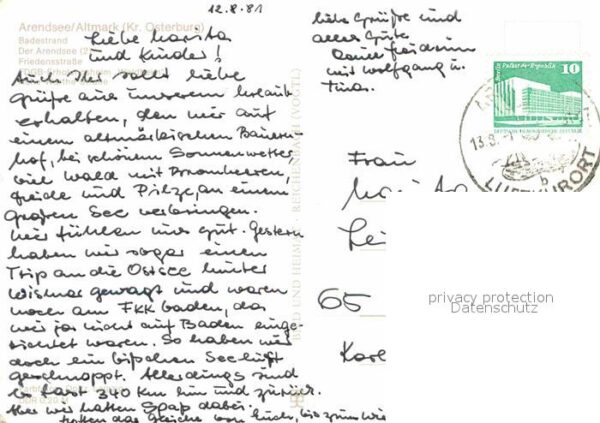 12.8.81
Arendsee/Altmark (Kr. Osterburg)
Badestrand
Der Arendsee (2)
Friedensstraße
Liebe Marita
und Kinder!
Auch Ihr sollt liebe
Grüße aus unserem Urlaub
erhalten, den wir auf
einem altmärkischen Bauern-
hof, bei schönem Sonnenwetter
viel Wald mit Brombeeren,
und Pilze, an einem
großen See verbringen.
Wir fühlen uns gut. Gestern
haben wir sogar einen
Trip an die Ostsee hinter
Wismar gewagt und waren
noch am FKK baden, da
wir ja nicht auf Baden einge-
richtet waren. So haben wir
doch ein bißchen Seeluft
geschnappt. Allerdings sind
es fast 340 km hin und zurück.
Aber wir hatten Spaß dabei.
hoffen das Gleiche von Euch, bis zum
liebe Grüße und
alles Gute
mit Wolfgang u.
Tina.
BILD UND HEIMAT REICHENBACH (VOGTL)
Berlin, Palast der Republik
10
DEUTSCHE DEMOKRATISCHE REPUBLIK
13.8.
LUFTKURORT
b
Frau
65
privacy protection
Datenschutz